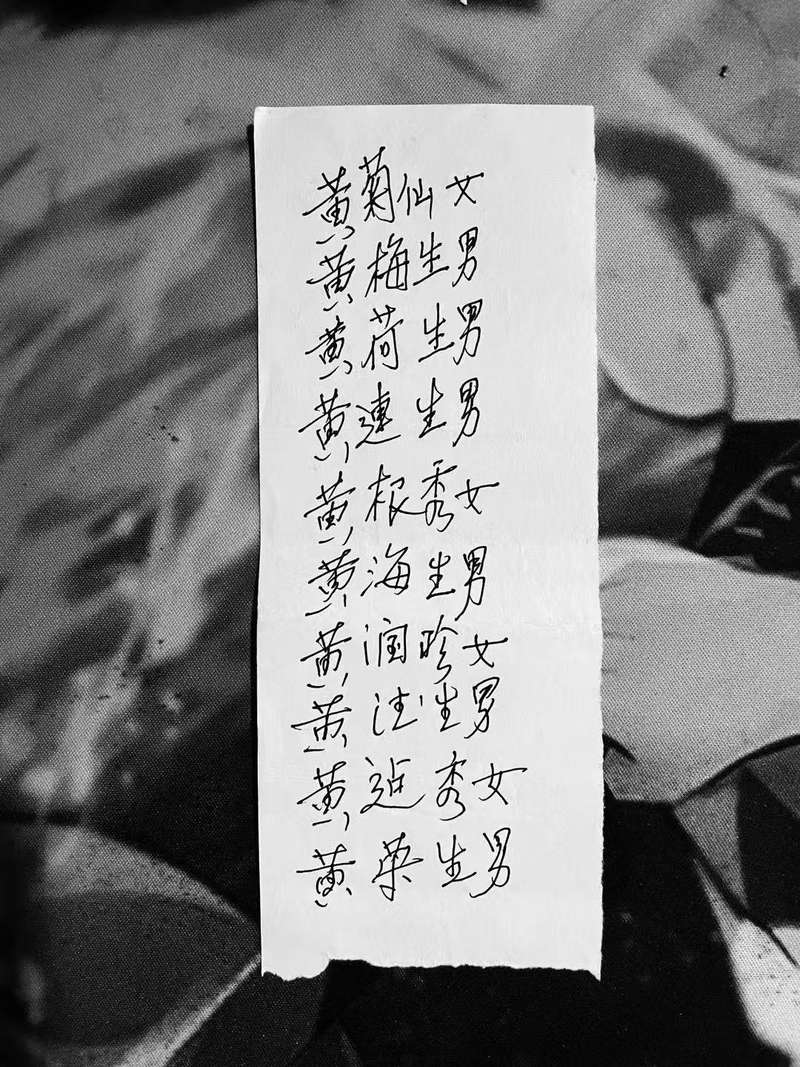 黄菊仙女
黄梅生男
黄荷生男
黄連生男
黄根秀女
黄海生男
黄润珍女
黄法生男
黄秀女
黄荣生男